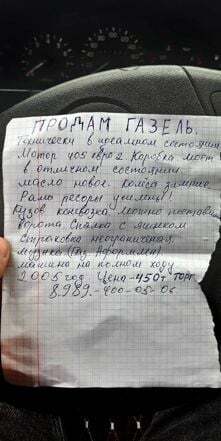 ПРОДАМ ГАЗЕЛЬ.
Технически в идеалном состоянии
Мотор 405 евро 2 Коробка мост
в отличном состоянии
масло новое. колеса зимние
Рама ресоры усилены!
Кузов конвозка! Можно поставить
ворота. Спалка с ящиком
Страховка неограниченая
музыка (Газ Оформлен)
машина на полном ходу
2005 год Цена - 450т ТОРГ
8.989.-400-05-06